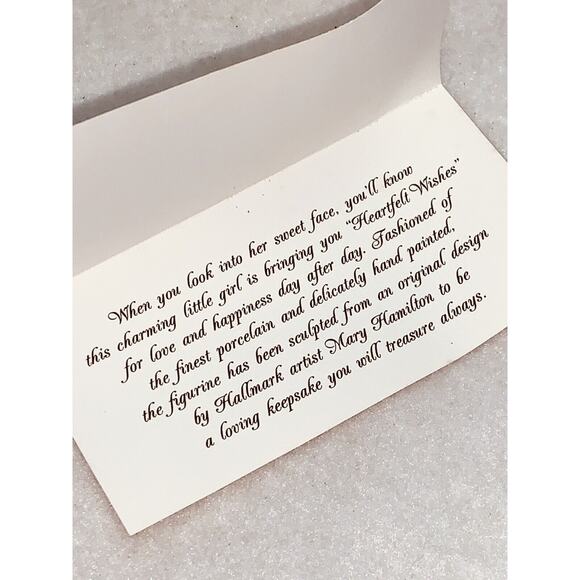 When you look into her sweet face, you'll know
this charming little girl is bringing you "Heartfelt Wishes"
for love and happiness day after day. Fashioned of
the finest porcelain and delicately hand painted,
the figurine has been sculpted from an original design
by Hallmark artist Mary Hamilton to be
a loving keepsake you will treasure always.